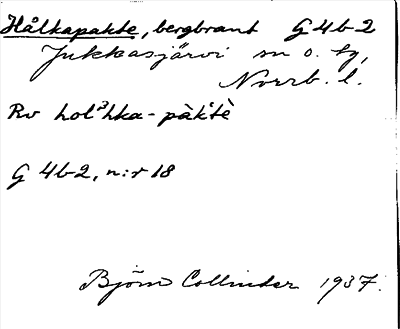 Hålkapakte, bergbrant G4b2
Jukkasjärvi sn o. tg,
Norrb. l.
Rv hol³hka-pàk'tè
G 4b2, n:r 18
Björn Collinder 1937.